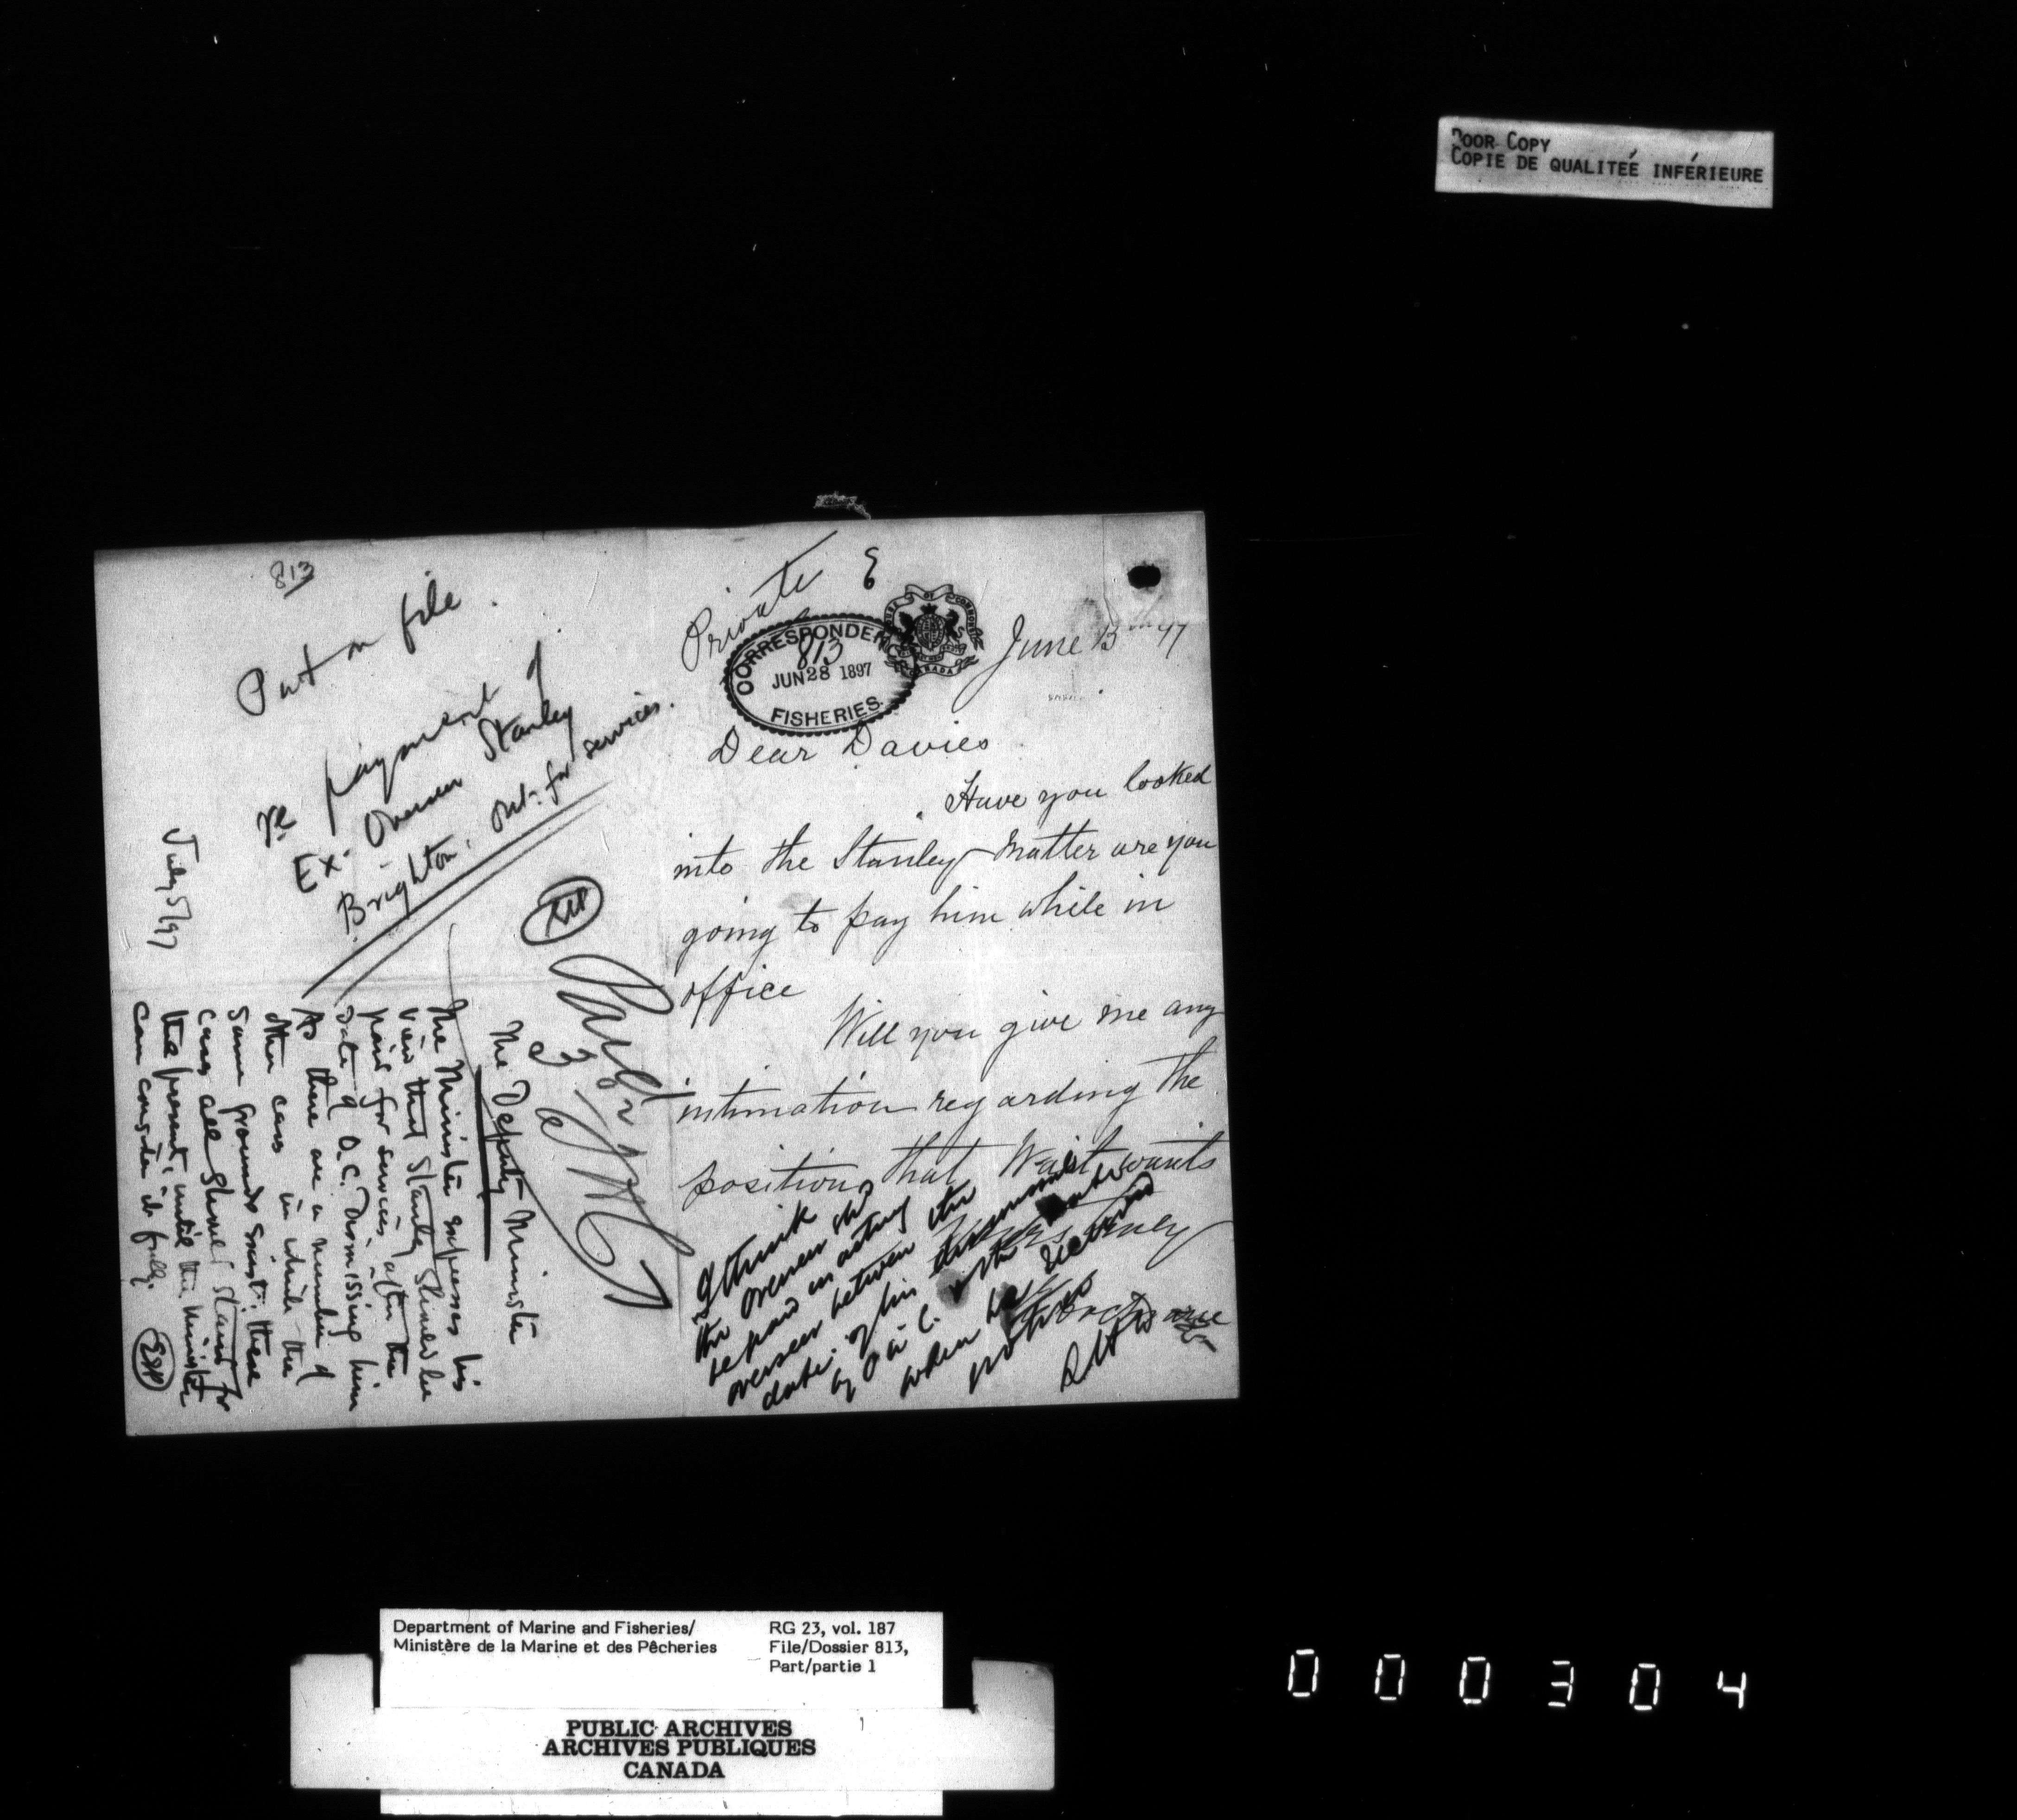 POOR COPY
COPIE DE QUALITEÉ INFÉRIEURE
813
Put on file.
re payment of
Ex. Overseer Stanley
Brighton, Ont: for services.
July 5/97
The Deputy Minister
The Minister expresses his
view that Stanley should be
paid for services after the
date of O.C. dismissing him
As there are a number of
other cases in which the
same grounds exist: these
cases all should stand for
the present, until the Minister
can consider it fully.
Private
E
HOUSE OF COMMONS
CANADA
CORRESPONDENCE
813
JUN 28 1897
FISHERIES.
June 15th 97
Dear Davies
Have you looked
into the Stanley Matter are you
going to pay him while in
office
Will you give me any
intimation regarding the
position that Wait wants
I think
the Overseer shd
be paid as acting
overseer between the
date of his dismissal
by O in C. & the date
when he received
notice
Department of Marine and Fisheries/
Ministère de la Marine et des Pêcheries
RG 23, vol. 187
File/Dossier 813,
Part/partie 1
PUBLIC ARCHIVES
ARCHIVES PUBLIQUES
CANADA
000304